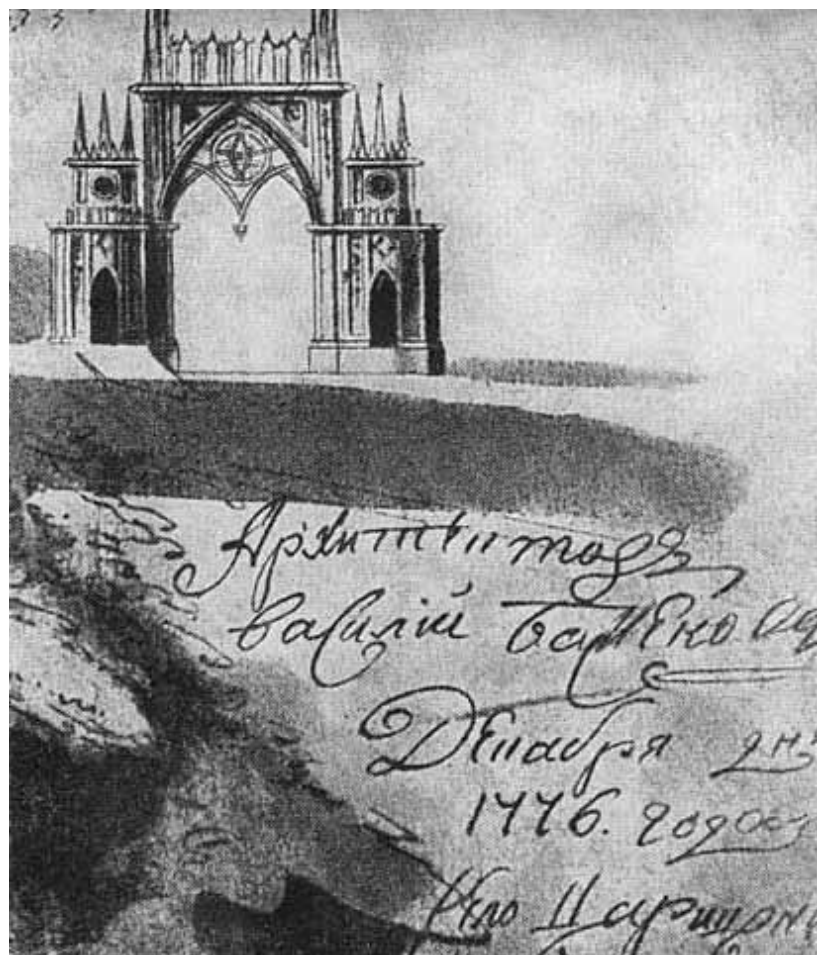 Архитекторъ
василій Баженовъ
Декабря дн
1776. года
Село Царицын